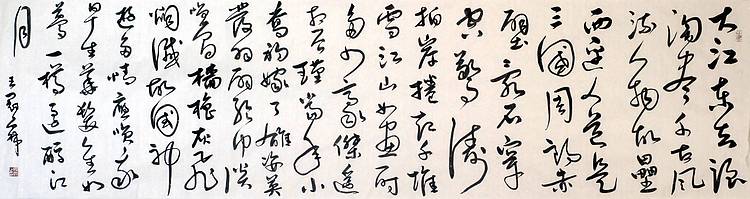 大江东去浪
淘尽千古风
流人物故壘
西边人道是
三國周郎赤
壁乱石穿
空惊涛
拍岸捲起千堆
雪江山如画一时
多少豪傑遥
想公瑾当年小
乔初嫁了雄姿英
发羽扇纶巾谈
笑间樯橹灰飞
烟灭故國神
遊多情应笑我
早生华发人生如
梦一樽还酹江
月